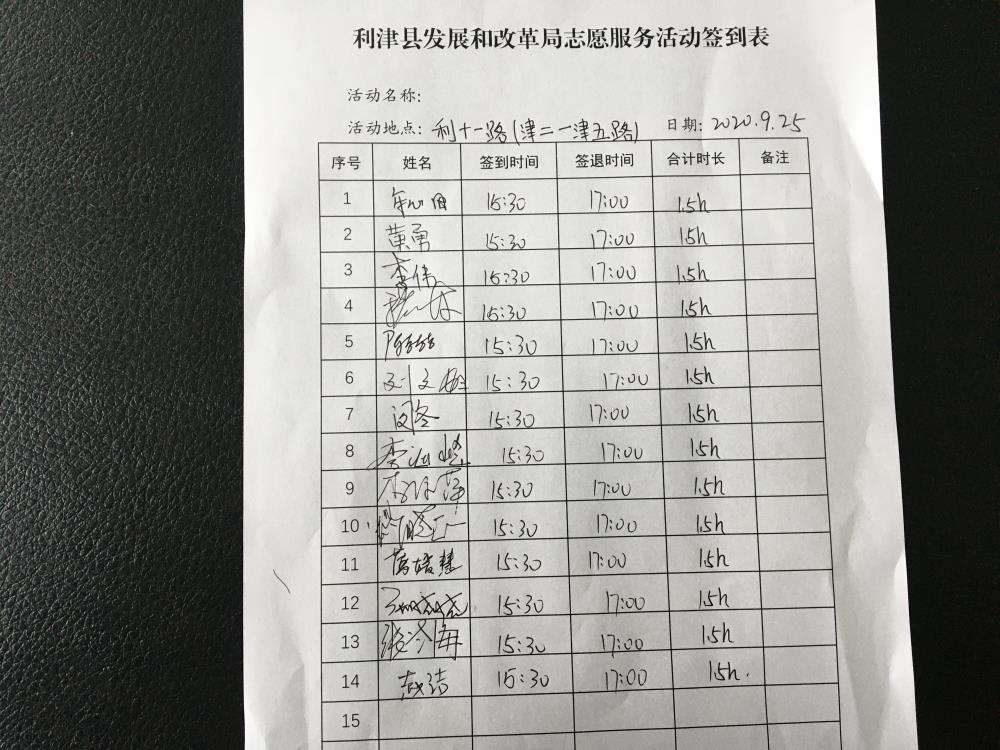 利津县发展和改革局志愿服务活动签到表
活动名称:
活动地点: 利十一路(津二一津五路) 日期: 2020.9.25
序号 姓名 签到时间 签退时间 合计时长 备注
1 15:30 17:00 1.5h
2 黄勇 15:30 17:00 1.5h
3 李伟 15:30 17:00 1.5h
4 15:30 17:00 1.5h
5 15:30 17:00 1.5h
6 刘文 15:30 17:00 1.5h
7 闵冬 15:30 17:00 1.5h
8 李 15:30 17:00 1.5h
9 李 萍 15:30 17:00 1.5h
10 15:30 17:00 1.5h
11 15:30 17:00 1.5h
12 15:30 17:00 1.5h
13 张 海 15:30 17:00 1.5h
14 洁 15:30 17:00 1.5h.
15